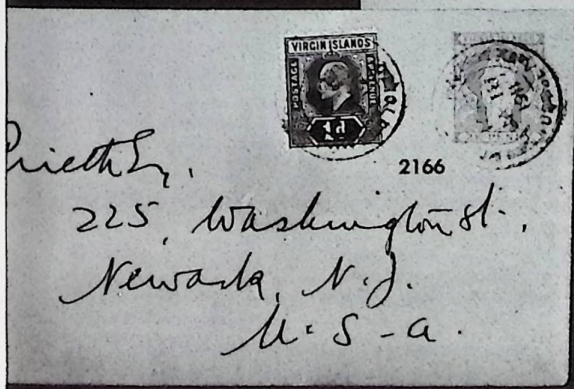 VIRGIN ISLANDS
POSTAGE
REVENUE
2166
225, Washington St.,
Newark, N.J.
U.S-a.